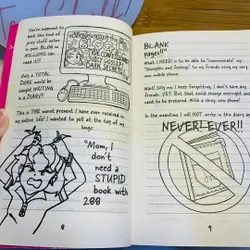 You're supposed to
post this kind of
juicy stuff online
in your BLOG so
MILLIONS
can read it!!!
Only a TOTAL
DORK would be
caught WRITING
in a DIARY!!
This is THE worst present I have ever received in
my entire life! I wanted to yell at the top of my
lungs:
"Mom, I
don't
need a
STUPID
book with
288
8
BLANK
pages!!"
What I NEED is to be able to "communicate" my
"thoughts and feelings" to my friends using my very
own
Wait! Silly me. I keep forgetting, I don't have any
friends. YET. But that could change overnight and
need to be prepared. With a shiny, new phone!
In the meantime I will NOT write in this diary again
NEVER! EVER!!
9